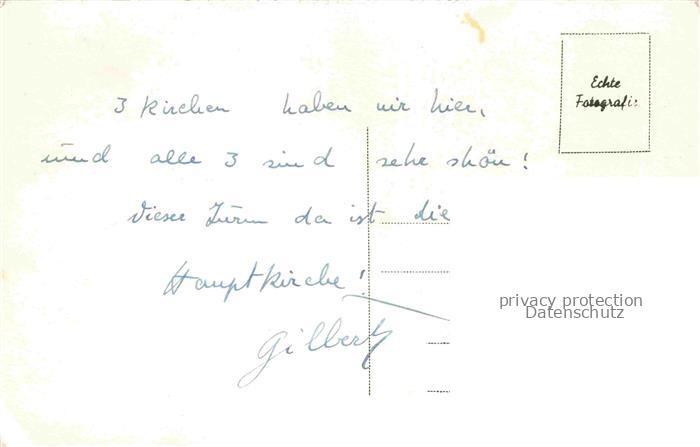 Echte
Fotografie
3 Kirchen haben wir hier,
und alle 3 sind sehr shön!
Dieser Turm da ist die
Hauptkirche!
Gilbert
privacy protection
Datenschutz